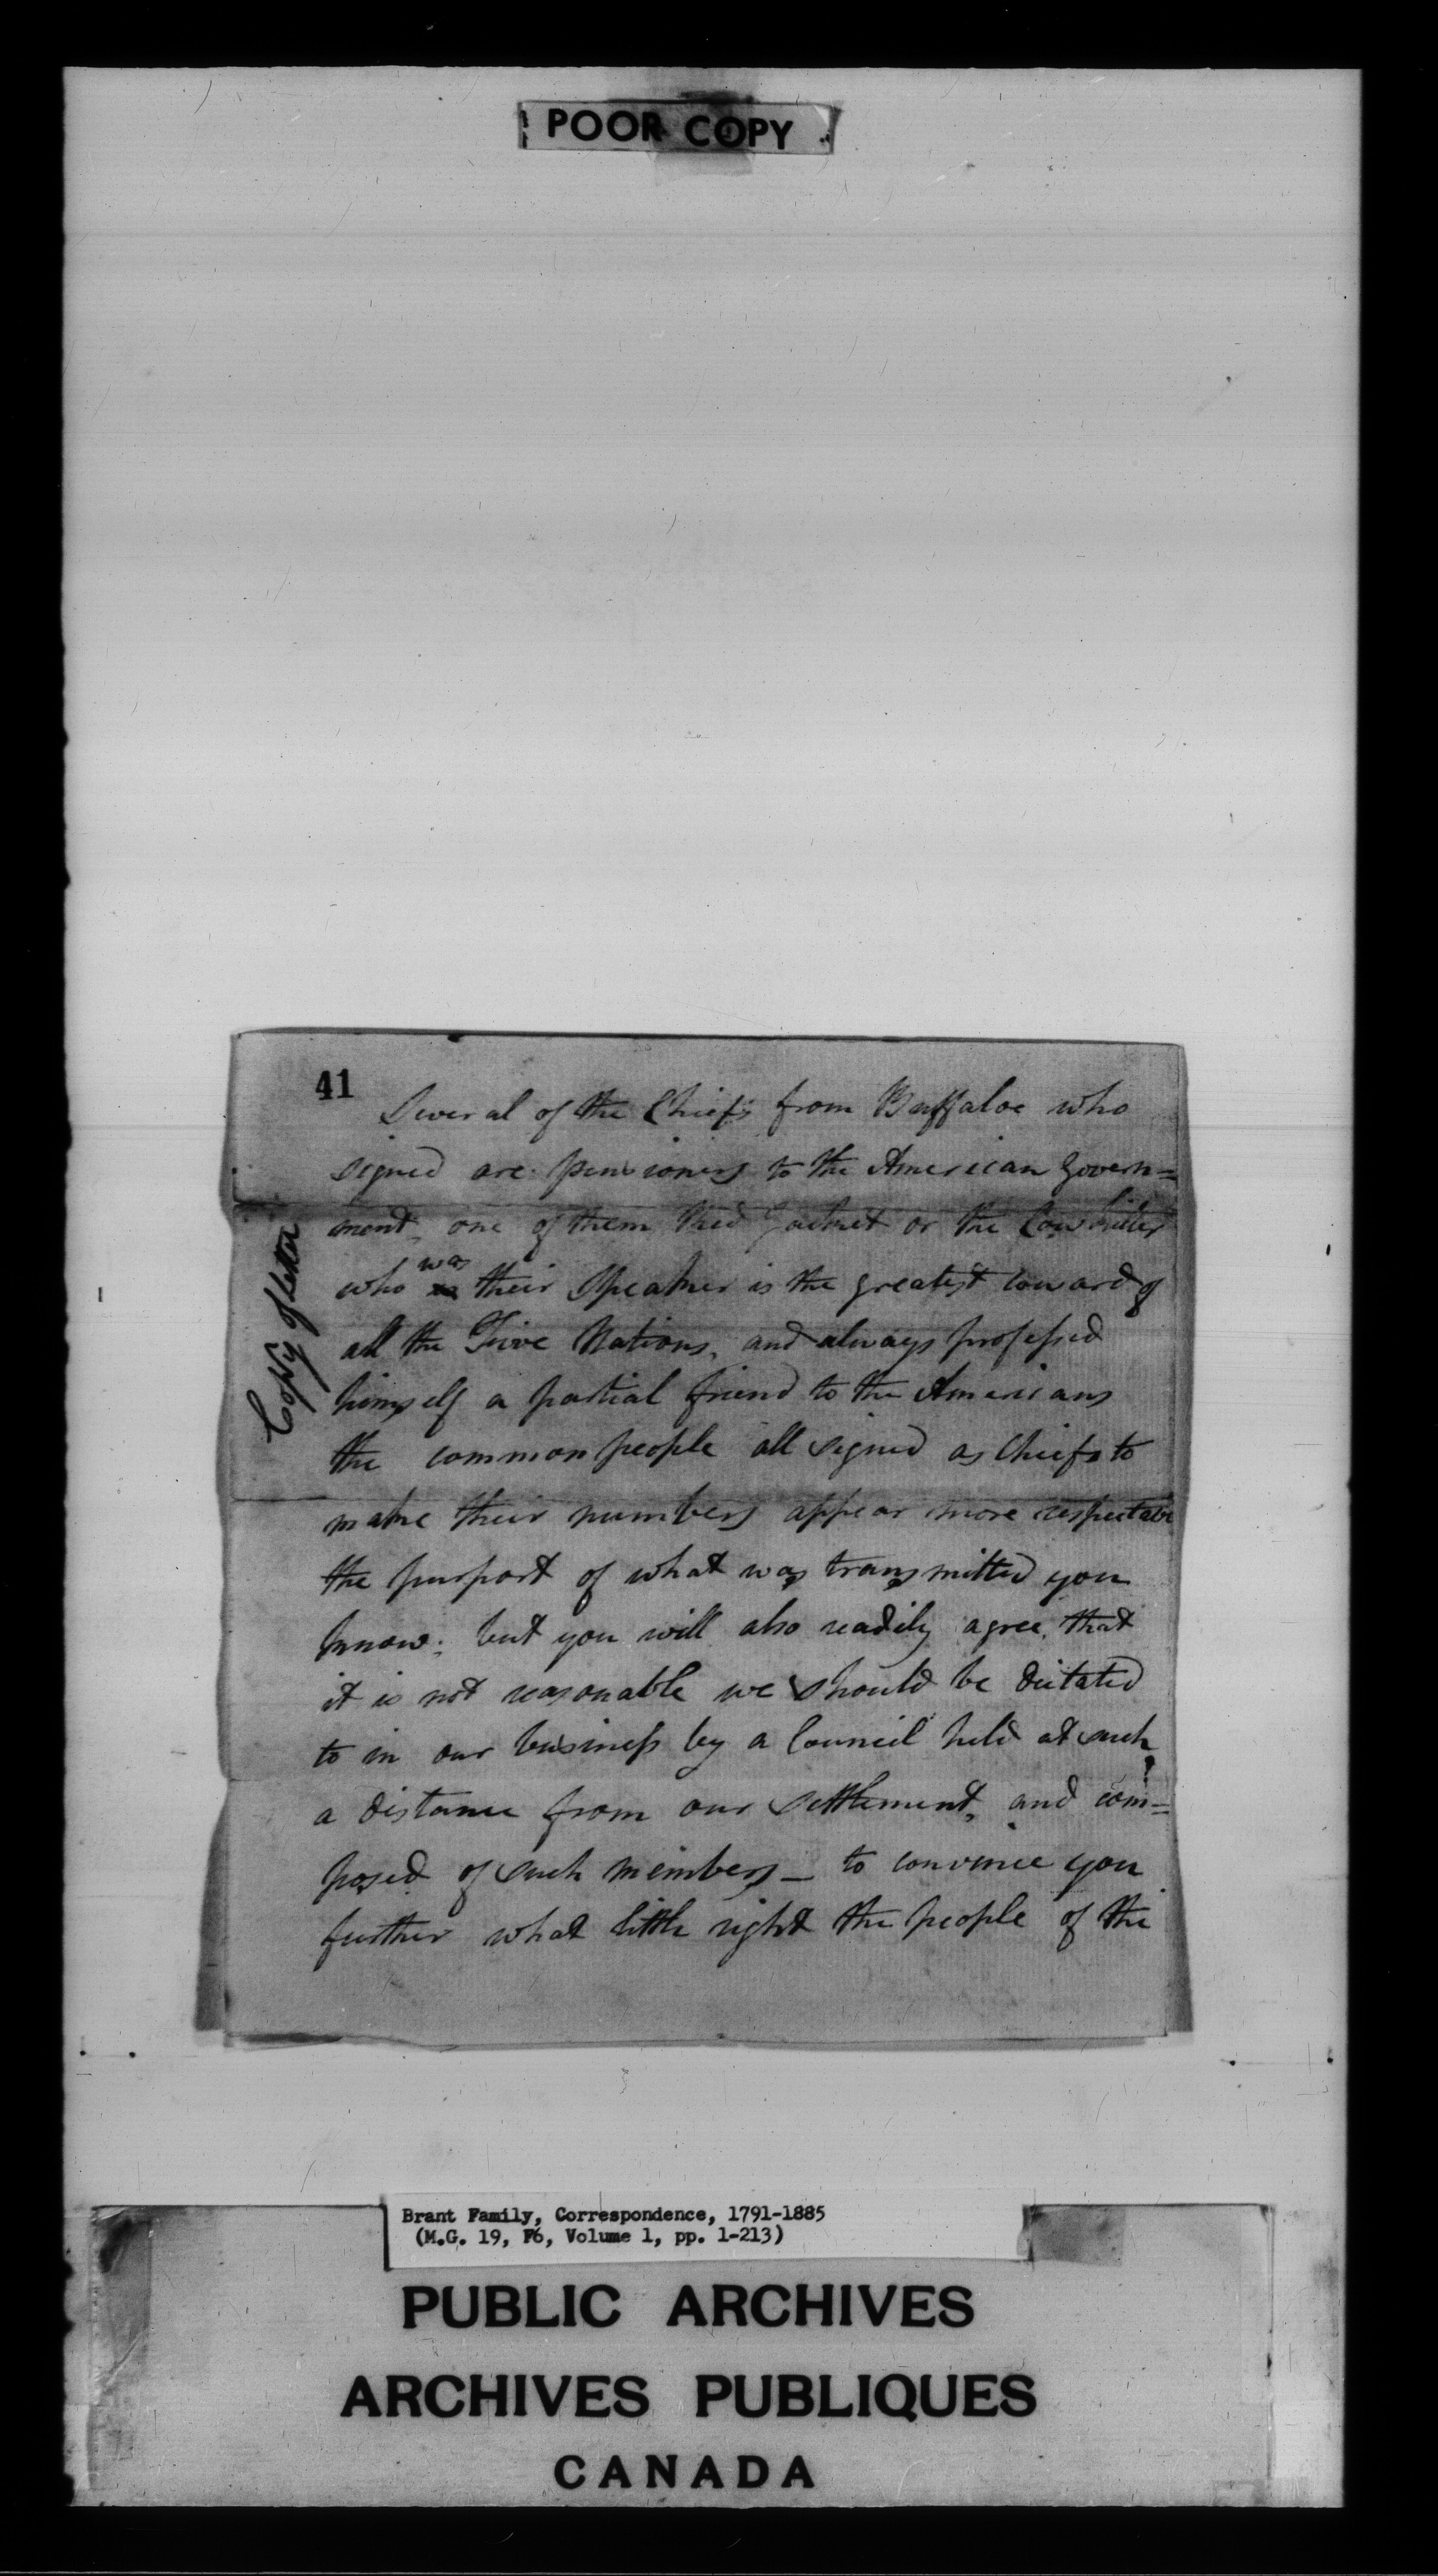 POOR COPY
41
Several of the Chiefs from Buffaloe who
signed are pensioners to the American Govern=
ment, one of them Red Jacket or the Cow killer
who was their Speaker is the greatest coward of
all the Five Nations, and always professed
himself a partial friend to the Americans
the common people all signed as Chiefs to
make their numbers appear more respectable
the purport of what was transmitted you
know; but you will also readily agree, that
it is not reasonable we should be dictated
to in our business by a Council held at such
a distance from our settlement, and com=
posed of such members – to convince you
further what little right the people of the
Copy of letter
Brant Family, Correspondence, 1791-1885
(M.G. 19, F6, Volume 1, pp. 1-213)
PUBLIC ARCHIVES
ARCHIVES PUBLIQUES
CANADA